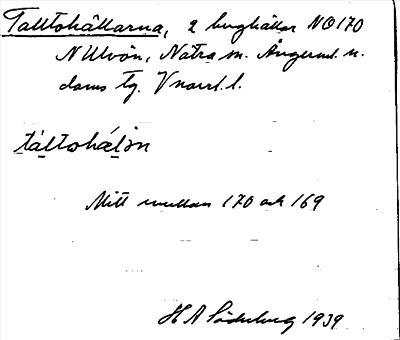 Talltohällarna, 2 berghällar NO 170
N Ulvön, Nätra sn. Ångerml. n.
doms tg. Vnorrl. l.
táltohál̥ɔn
Mitt mellan 170 och 169
H A Söderberg 1939